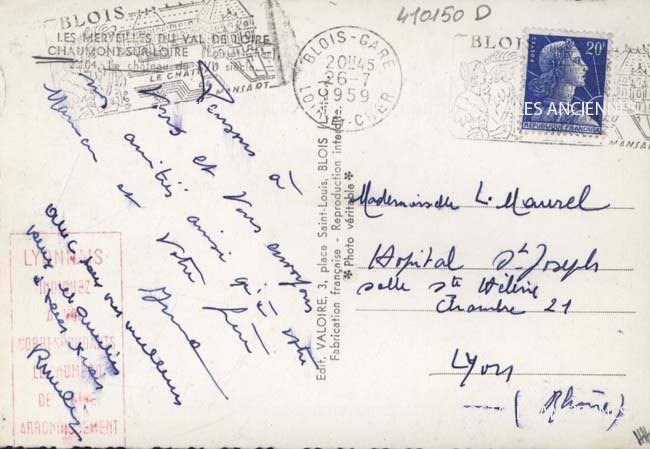 410150 D
BLOIS
LES MERVEILLES DU VAL DE LOIRE
CHAUMONT-SUR-LOIRE (Loir-et-Cher)
2.104. Le château du XVI siècle
LE CHAT
MANSART
BLOIS-GARE
20H45
26-7
1959
LOIR-ET-CHER
BLOIS
POSTES
20F
REPUBLIQUE FRANÇAISE
MANSART
LES ANCIENNES
Pensons à
vous et vous envoyons
nos amitiés ainsi qu'à votre
Maman et votre
avec tous nos meilleurs
Edit. VALOIRE, 3, place Saint-Louis, BLOIS (L.-&-C.)
Fabrication française - Reproduction interdite.
* Photo véritable *
Mademoiselle L. Maurel
Hopital St Joseph
salle Ste Hélène
Chambre 21
Lyon
(Rhône)
LYONNAIS
INDIQUEZ
A VOS
CORRESPONDANTS
LE NUMERO
DE VOTRE
ARRONDISSEMENT